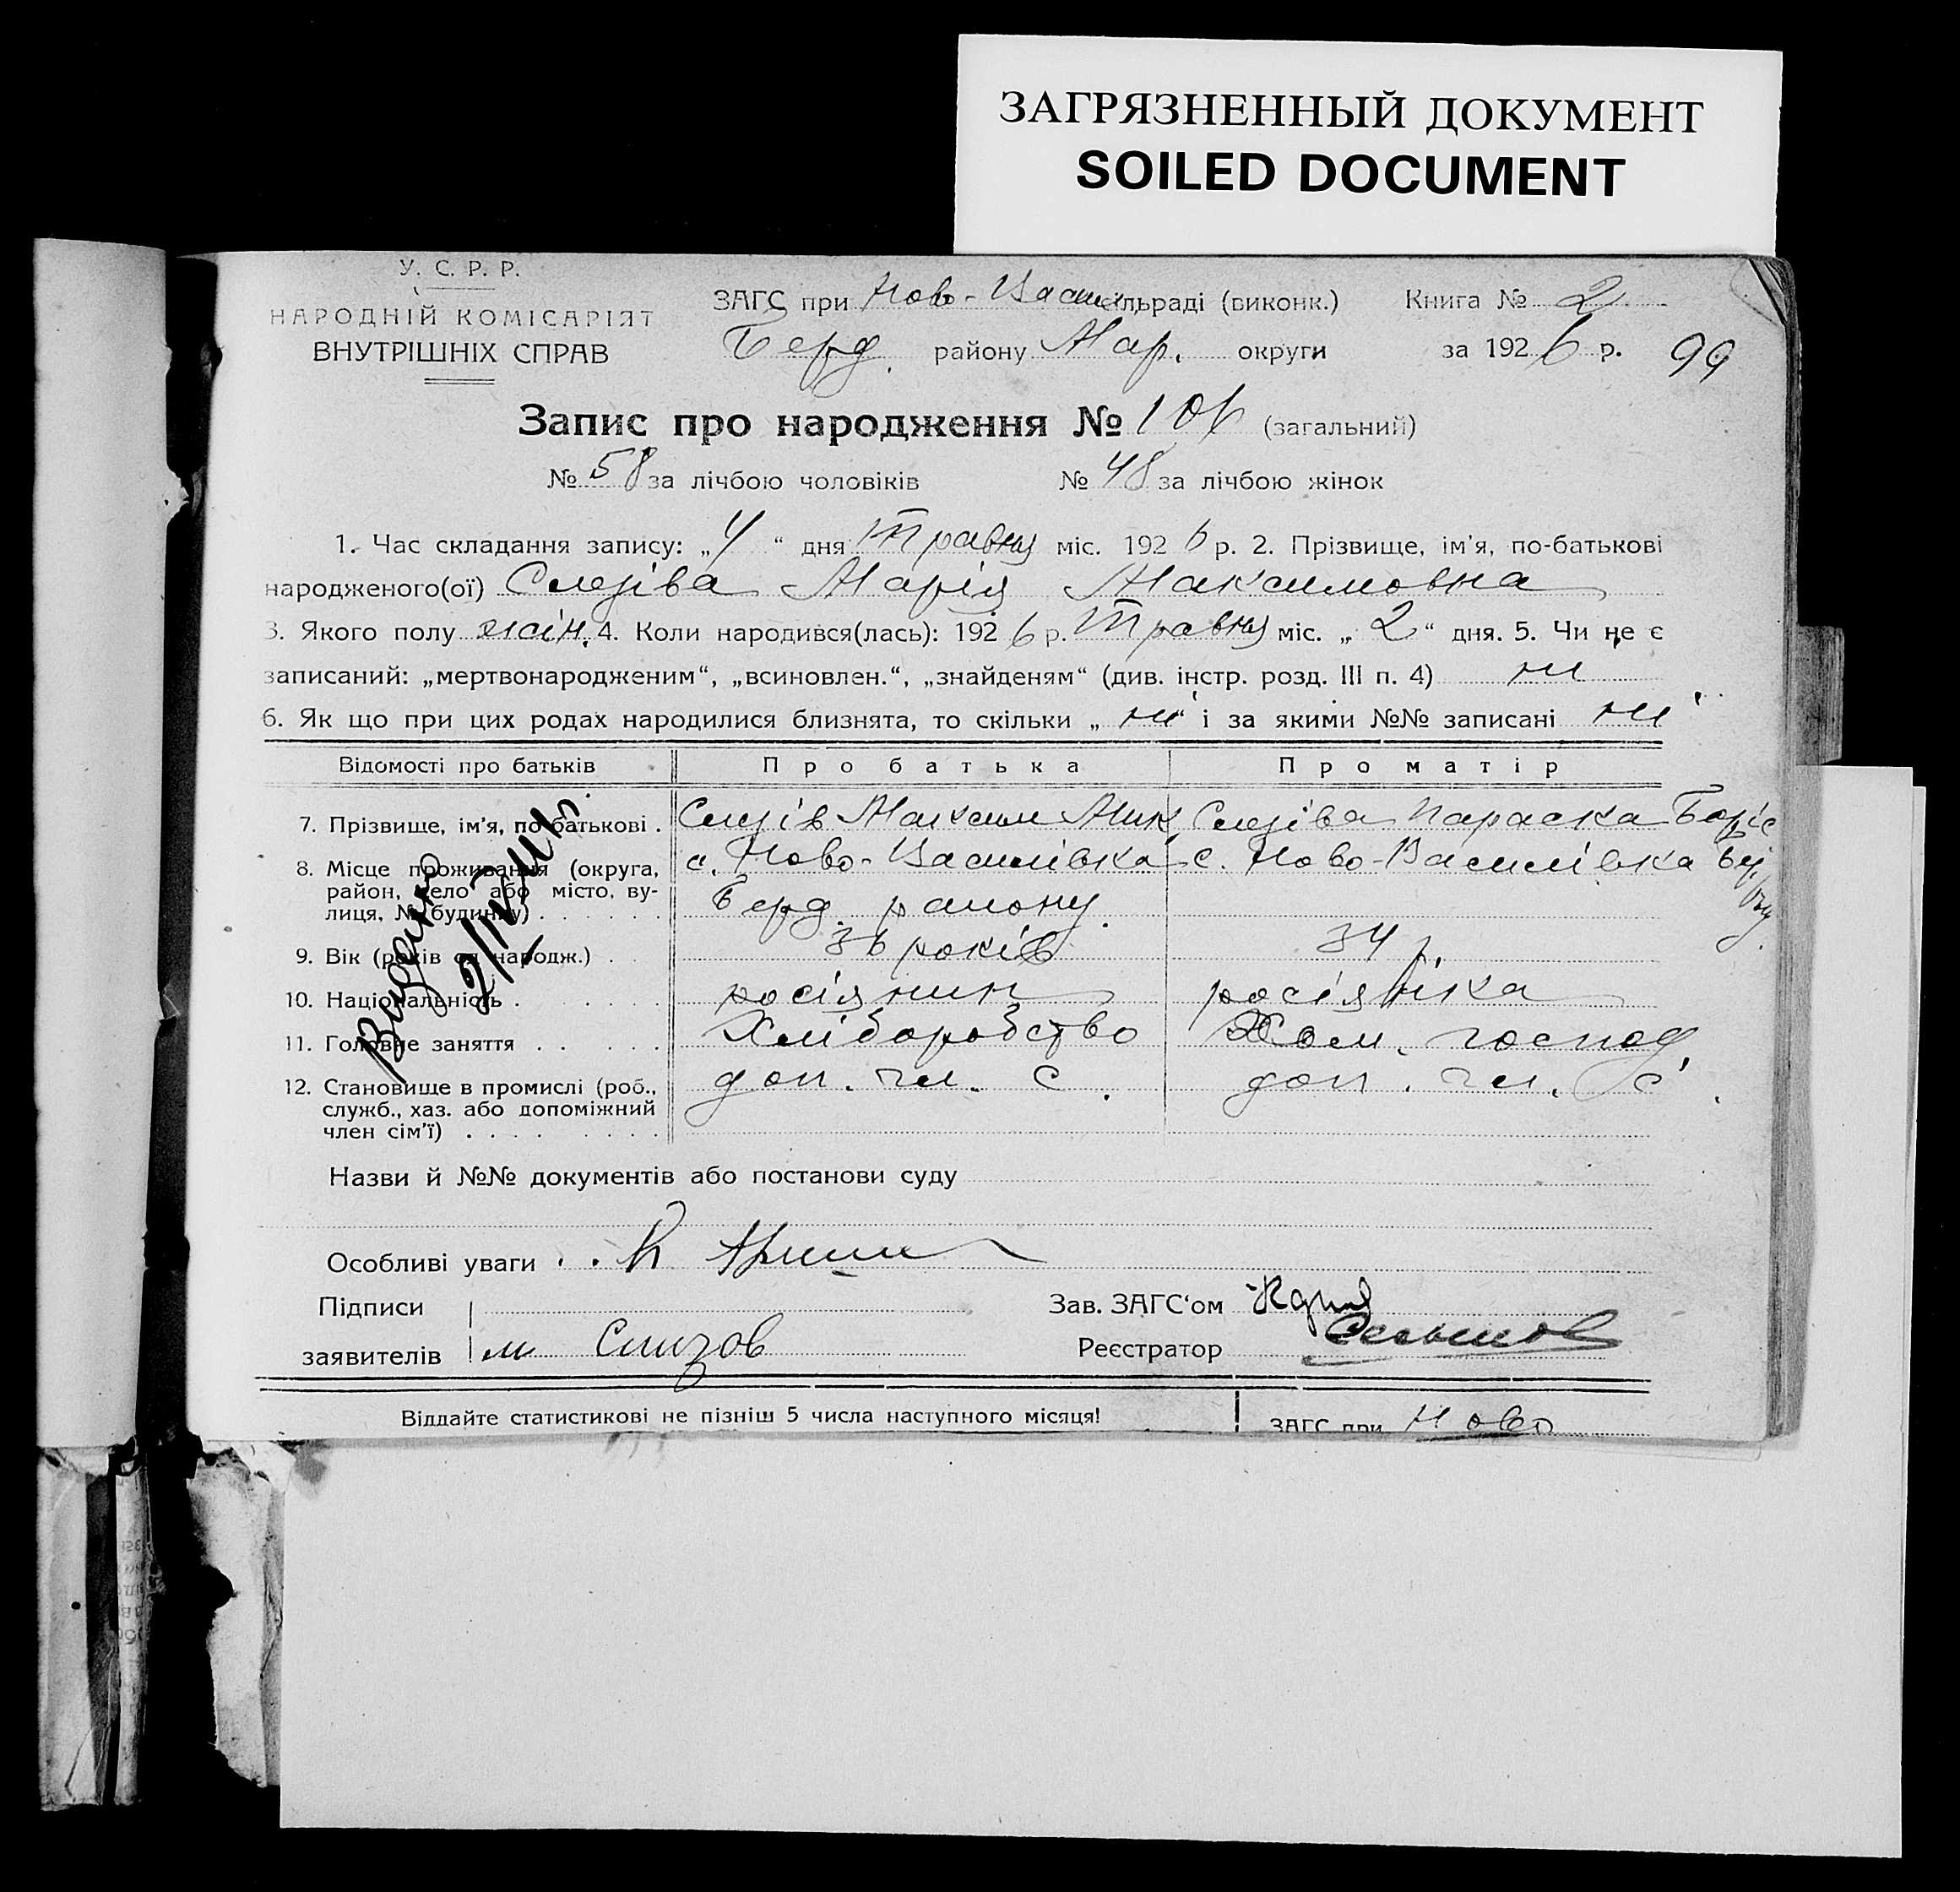 ЗАГРЯЗНЕННЫЙ ДОКУМЕНТ
SOILED DOCUMENT
У. С. Р. Р.
НАРОДНІЙ КОМІСАРІЯТ
ВНУТРІШНІХ СПРАВ
ЗАГС при Ново-Васил. сільраді (виконк.)
Берд. району Мар. округи
Книга № 2
за 1926 р. 99
Запис про народження № 106 (загальний)
№ 58 за лічбою чоловіків № 48 за лічбою жінок
1. Час складання запису: „4“ дня травня міс. 1926 р. 2. Прізвище, ім'я, по-батькові
народженого(ої) Слезіва Марія Максимовна
3. Якого полу жін. 4. Коли народився(лась): 1926 р. травня міс. „2“ дня. 5. Чи не є
записаний: „мертвонародженим“, „всиновлен.“, „знайденям“ (див. інстр. розд. III п. 4) ні
6. Як що при цих родах народилися близнята, то скільки „ні“ і за якими №№ записані ні
Відомості про батьків Про батька Про матір
7. Прізвище, ім'я, по-батькові . Слезів Максим Мик. Слезіва Параска Боріс
8. Місце проживання (округа, район, село або місто, вулиця, № будинку) с. Ново-Василівка Берд. району с. Ново-Василівка
9. Вік (років од народж.) 36 років 34 р.
10. Національність росіянин росіянка
11. Головне заняття Хліборобство Хом. господ.
12. Становище в промислі (роб., служб., хаз. або допоміжний член сім'ї) доп. чл. с. доп. чл. с.
Видано
Назви й №№ документів або постанови суду
Особливі уваги
Підписи
заявителів м Слизов
Зав. ЗАГС'ом
Реєстратор
Віддайте статистикові не пізніш 5 числа наступного місяця!
ЗАГС при Ново